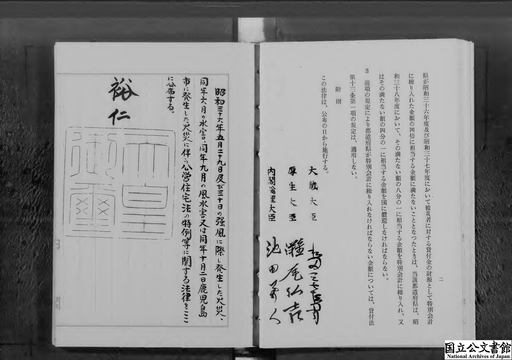 二
県が昭和三十六年度及び昭和三十七年度において被災者に対する貸付金の財源として特別会計
に繰り入れた金額の四倍に相当する金額に満たないこととなつたときは、当該都道府県は、昭
和三十八年度において、その満たない額の八分の一に相当する金額を特別会計に繰り入れ、又
はその満たない額の四分の一に相当する金額を国に償還しなければならない。
3 前項の規定により都道府県が特別会計に繰り入れなければならない金額については、貸付法
第十三条第一項の規定は、適用しない。
附則
この法律は、公布の日から施行する。
大蔵大臣
厚生大臣 灘尾弘吉
内閣総理大臣 池田勇人
昭和三十六年五月二十九日及び三十日の強風に際し発生した火災、
同年六月の水害、同年九月の風水害又は同年十月二日鹿児島
市に発生した火災に伴う公営住宅法の特例等に関する法律をここ
に公布する。
裕仁
国立公文書館
National Archives of Japan